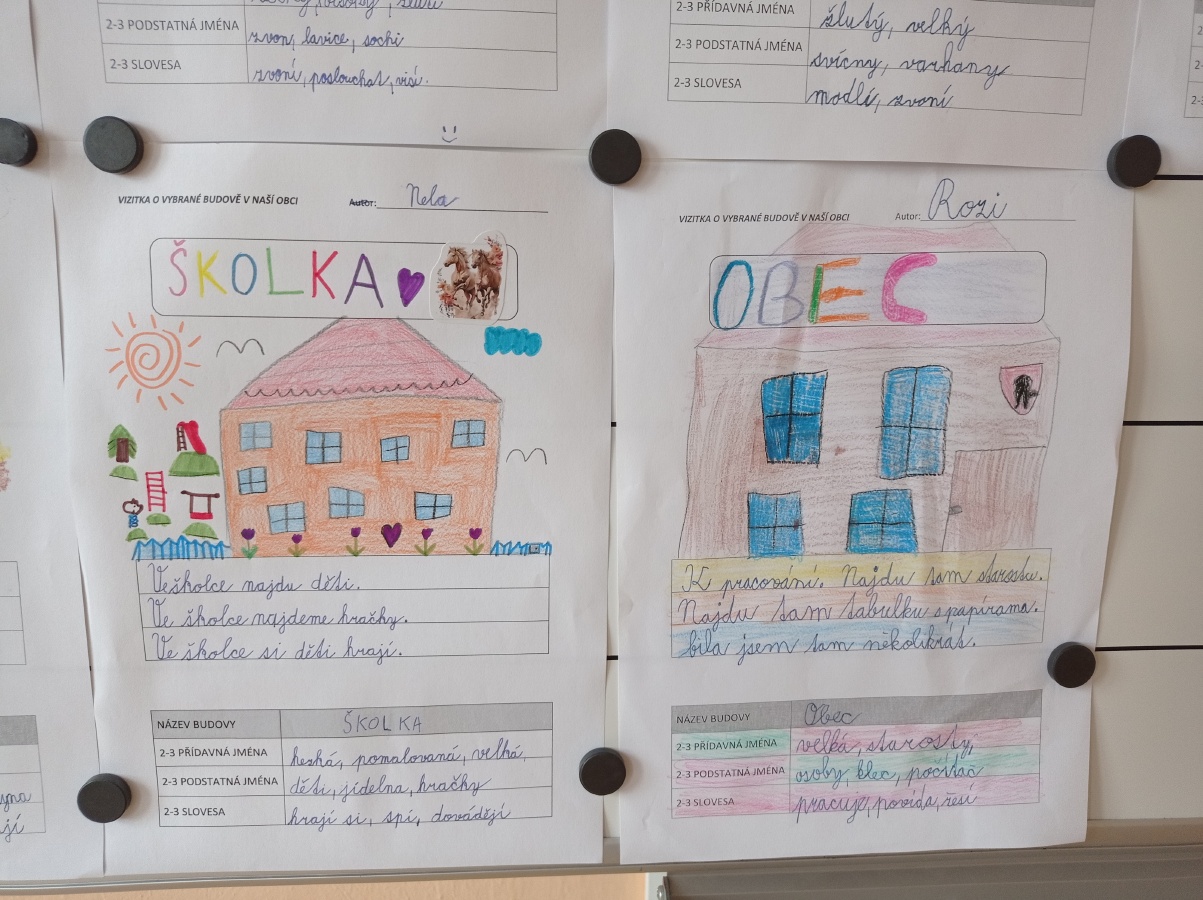 2-3 PODSTATNÁ JMÉNA zvon, lavice, sochi
2-3 SLOVESA zvoní, poslouchat, visí.
2-3 PŘÍDAVNÁ JMÉNA žlutý, velký
2-3 PODSTATNÁ JMÉNA svícny, varhany
2-3 SLOVESA modlí, zvoní
VIZITKA O VYBRANÉ BUDOVĚ V NAŠÍ OBCI Autor: Nela
ŠKOLKA
Ve školce najdu děti.
Ve školce najdeme hračky.
Ve školce si děti hrají.
NÁZEV BUDOVY ŠKOLKA
2-3 PŘÍDAVNÁ JMÉNA heská, pomalovaná, velká,
2-3 PODSTATNÁ JMÉNA děti, jídelna, hračky
2-3 SLOVESA hrají si, spí, dovádějí
VIZITKA O VYBRANÉ BUDOVĚ V NAŠÍ OBCI Autor: Rozi
OBEC
K pracování. Najdu tam starostu.
Najdu tam tabulku s papírama.
bila jsem tam několikrát.
NÁZEV BUDOVY Obec
2-3 PŘÍDAVNÁ JMÉNA velká, starosty,
2-3 PODSTATNÁ JMÉNA osoby, klec, počítač
2-3 SLOVESA pracuje, povídá, řeší